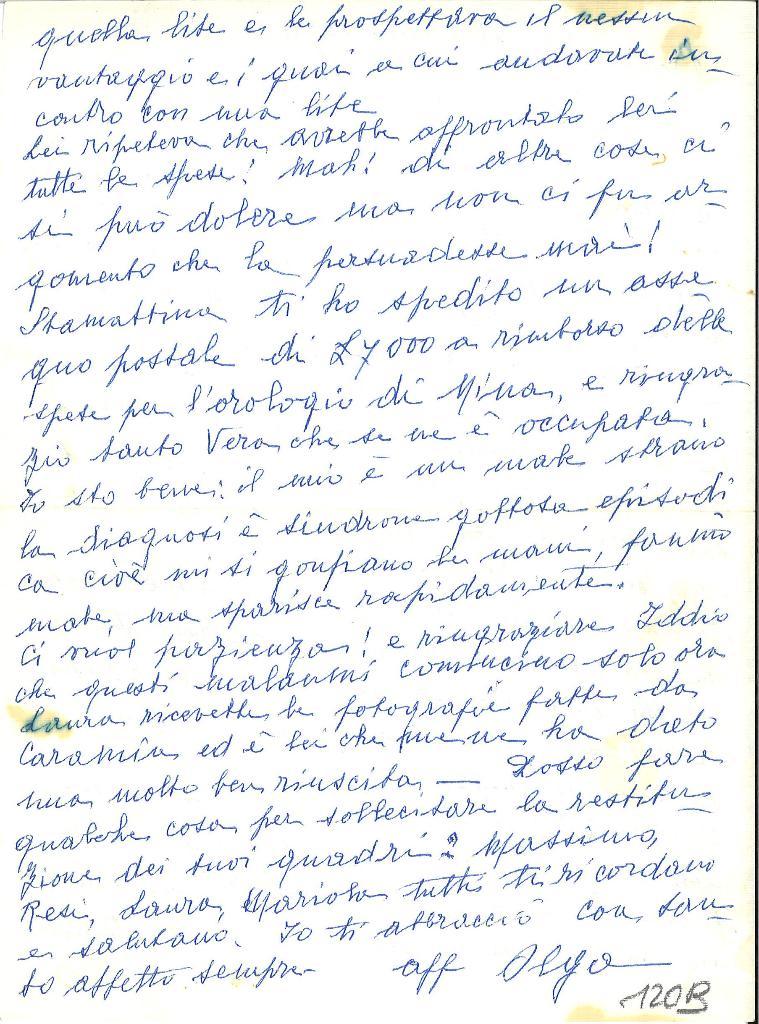 quella lite e le prospettava il nessun
vantaggio e i guai a cui andavate in-
contro con una lite
Lei ripeteva che avrebbe affrontato lei
tutte le spese! Mah! di altre cose ci
si può dolere ma non ci fu ar-
gomento che la persuadesse mai!
Stamattina ti ho spedito un asse
gno postale di £ 7000 a rimborso delle
spese per l'orologio di Mina, e ringra-
zio tanto Vera che se ne è occupata.
Io sto bene: il mio è un male strano
la diagnosi è sindrone gottosa episodi
ca cioè mi si gonfiano le mani, fanno
male, ma sparisce rapidamente.
Ci vuol pazienza! e ringraziare Iddio
che questi malanni comincino solo ora
Laura ricevette le fotografie fatte da
Caramia ed è lei che me ne ha dato
una molto ben riuscita — Posso fare
qualche cosa per sollecitare la restitu-
zione dei tuoi quadri? Massimo,
Resi, Laura, Mariola tutti ti ricordano
e salutano. Io ti abbraccio con tan-
to affetto sempre aff Olga
120B